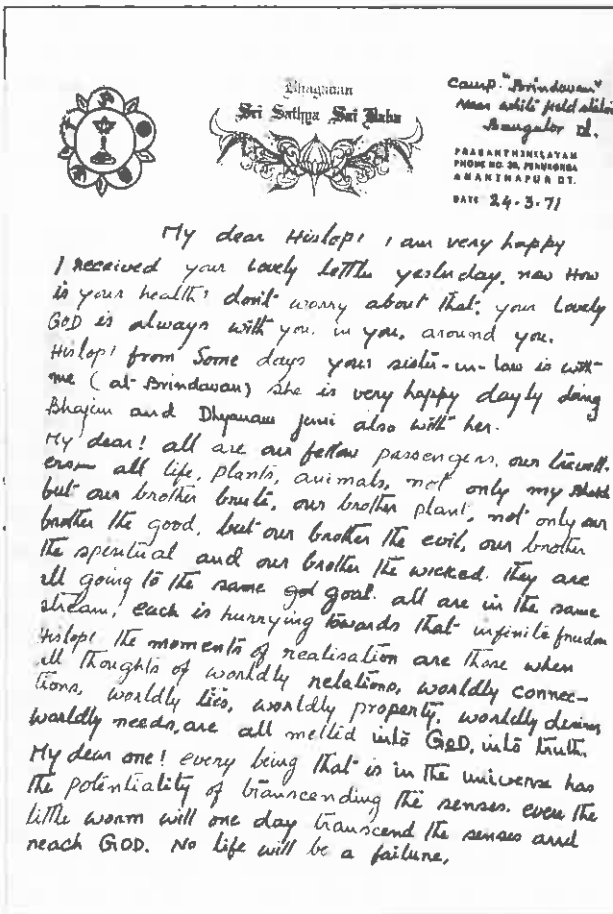 Bhagavan
Sri Sathya Sai Baba
Camp "Brindavan"
Near white field station
Bangalor Dt.
PRASANTHINILAYAM
PHONE NO. 30, PENUKONDA
ANANTHAPUR DT.
DATE 24-3-71
My dear Hislop! I am very happy
I received your lovely letter yesterday. now How
is your health? don't worry about that. your lovely
GOD is always with you, in you, around you.
Hislop! from Some days your sister-in-law is with
me (at Brindavan) she is very happy dayly doing
Bhajan and Dhyanam also with her.
My dear! all are our fellow passengers, our travell-
ers all life, plants, animals, not only my
but our brother brute, our brother plant, not only our
brother the good, but our brother the evil, our brother
the spiritual and our brother the wicked. they are
all going to the same goal. all are in the same
stream, each is hurrying towards that infinite freedom
Hislop! the moments of realisation are those when
all thoughts of worldly relations, worldly connec-
tions, worldly ties, worldly property, worldly desires
worldly needs, are all melted into GOD, into truth.
My dear one! every being that is in the universe has
the potentiality of transcending the senses. even the
little worm will one day transcend the senses and
reach GOD. No life will be a failure,